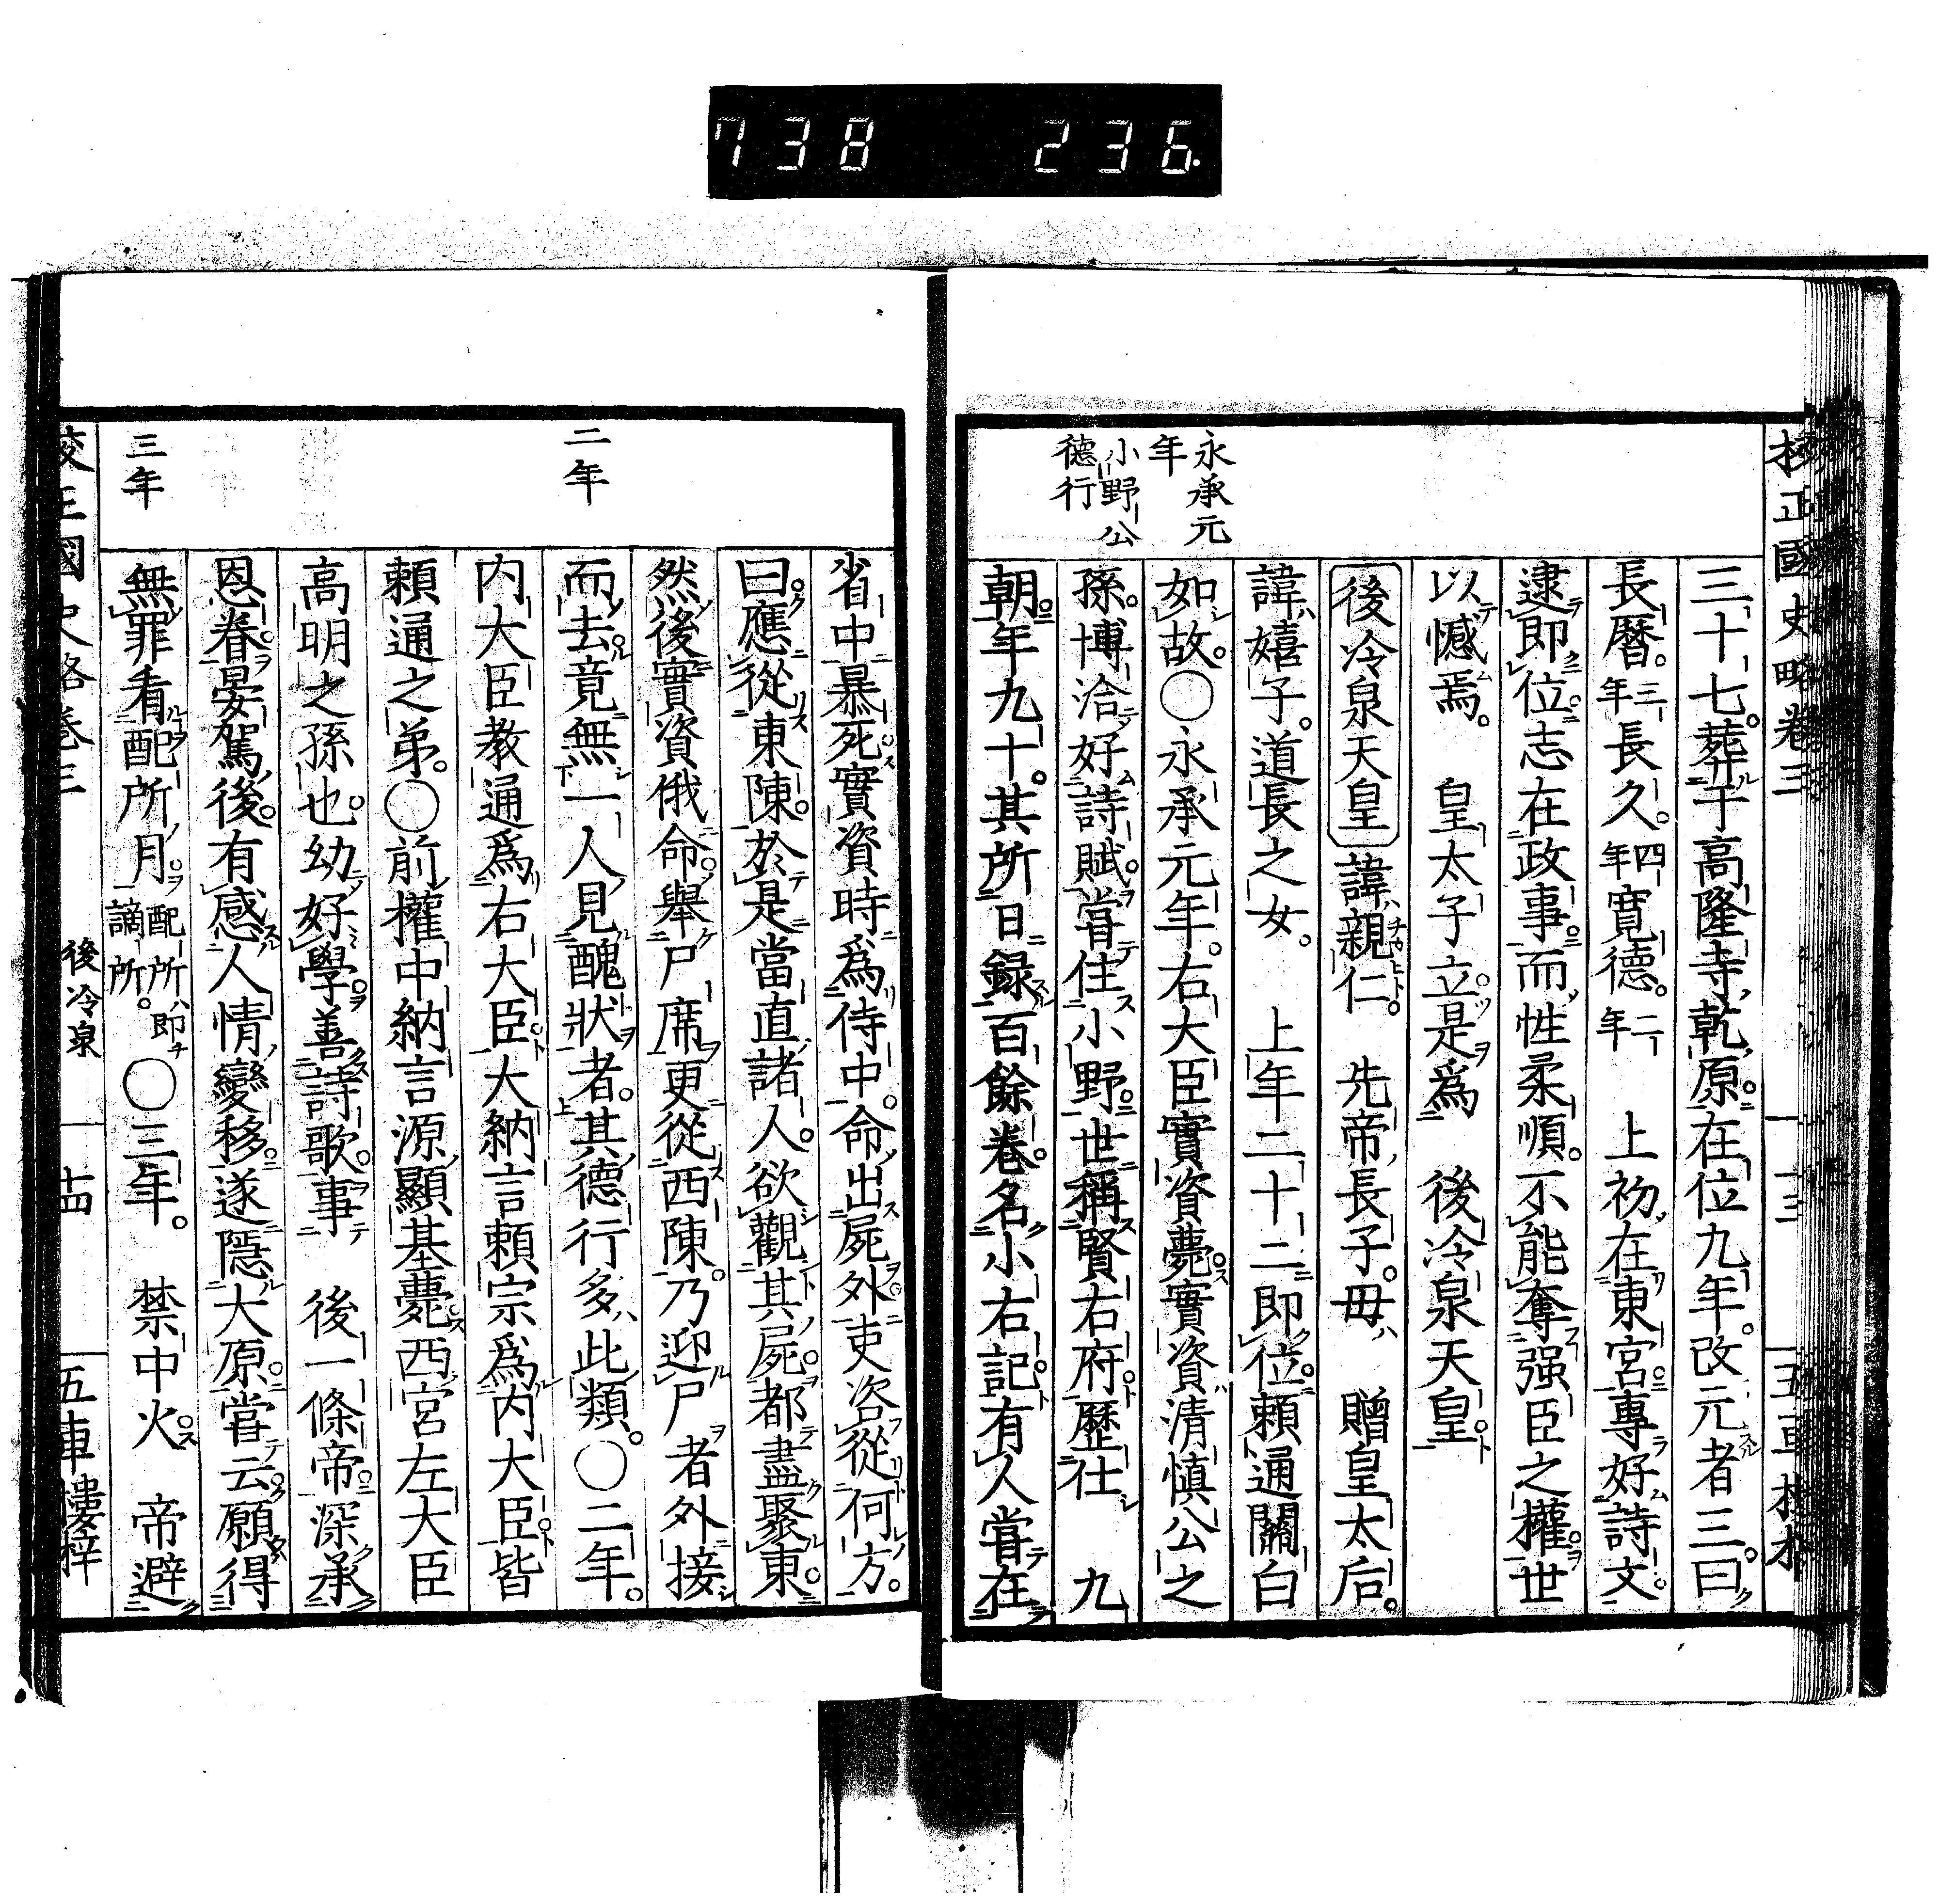 738 236.
校正國史略卷三 十三 五車樓梓
三十七。葬于高隆寺乾原。在位九年。改元者三。曰
長曆。三年長久。四年寛德。二年 上初在東宮。專好詩文。
逮即位。志在政事。而性柔順。不能奪强臣之權。世
以憾焉。 皇太子立。是爲 後冷泉天皇。
後冷泉天皇 諱親仁。 先帝長子。母 贈皇太后。
諱嬉子。道長之女。 上年二十二即位。賴通關白
如故。○永承元年。右大臣實資薨。實資清愼公之
孫。博洽好詩賦。嘗住小野。世稱賢右府。歷仕 九
朝。年九十。其所日錄百餘卷。名小右記。有人嘗在
永承元年
小野公德行
省中暴死。實資時爲侍中。命出屍外。吏咨從何方。
曰。應從東陳。於是當直諸人。欲觀其屍。都盡聚東。
然後實資俄命。舉尸席更從西陳。乃迎尸者外接
而去。竟無一人見醜狀者。其德行多此類。○二年。
内大臣敎通爲右大臣。大納言賴宗爲内大臣。皆
賴通之弟。○前權中納言源顯基薨。西宮左大臣
高明之孫也。幼好學。善詩歌。事 後一條帝。深承
恩眷。晏駕後。有感人情變移。遂隱大原。嘗云。願得
無罪看配所月。配所即チ謫所。○三年。 禁中火。 帝避
二年
三年
校正國史略卷三 後冷泉 十四 五車樓梓